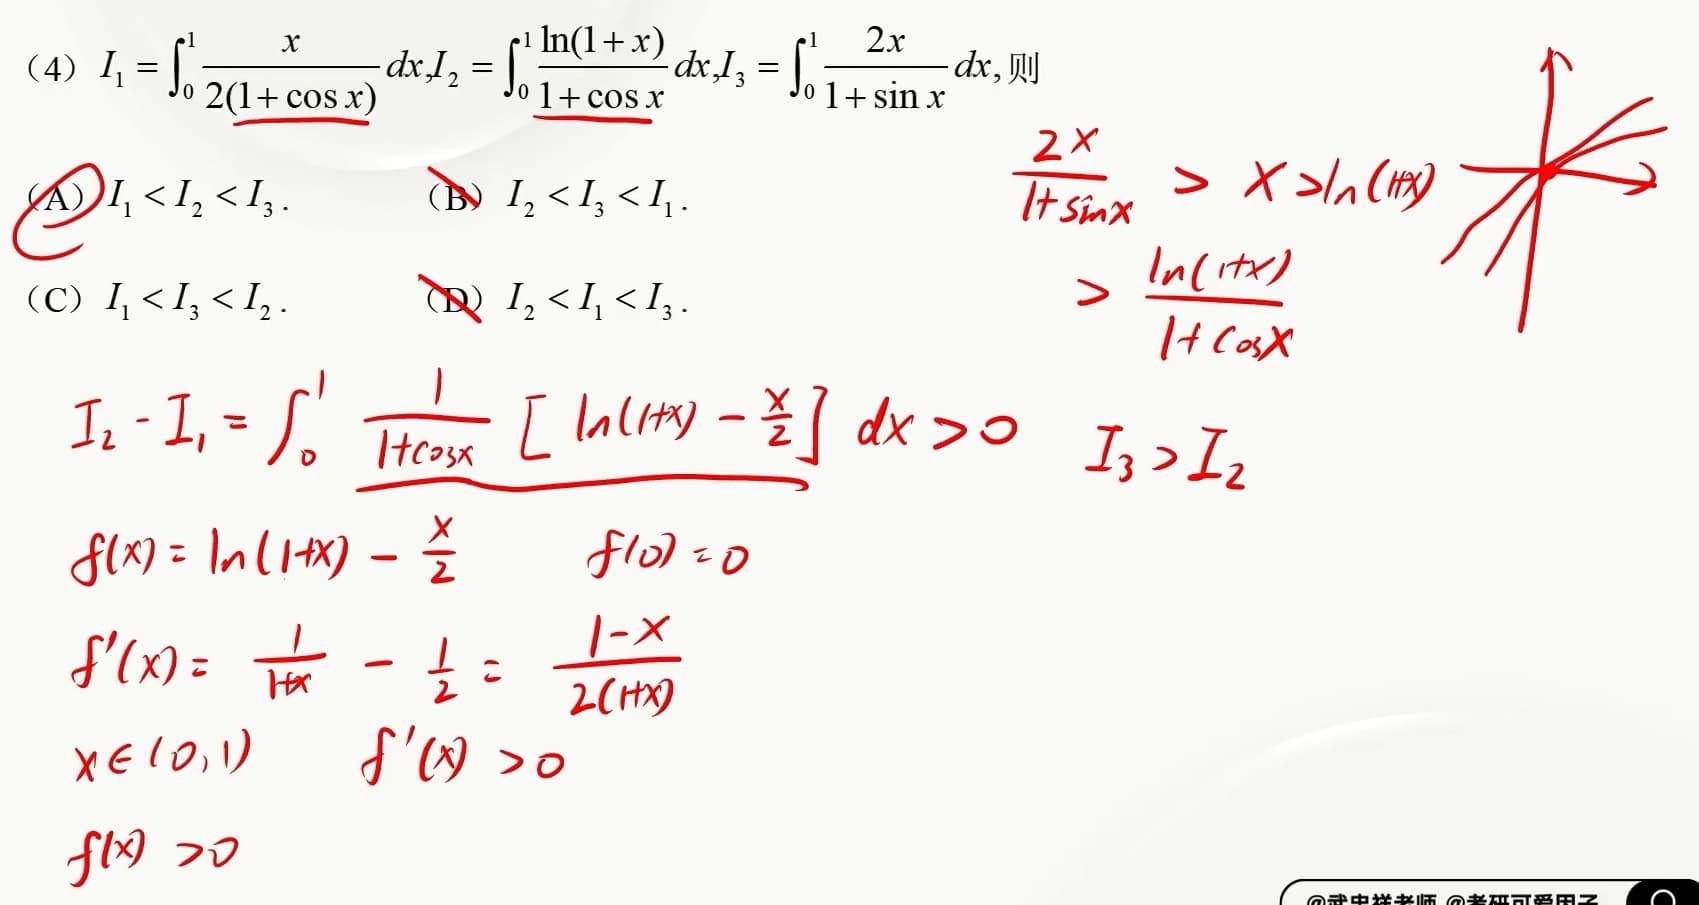 (4) I₁ = ∫₀¹ x/(2(1+cos x)) dx, I₂ = ∫₀¹ ln(1+x)/(1+cos x) dx, I₃ = ∫₀¹ 2x/(1+sin x) dx, 则
(A) I₁ < I₂ < I₃. (B) I₂ < I₃ < I₁.
(C) I₁ < I₃ < I₂. (D) I₂ < I₁ < I₃.
2x/(1+sinx) > x > ln(1+x)
> ln(1+x)/(1+cosx)
I₂ - I₁ = ∫₀¹ 1/(1+cosx) [ln(1+x) - x/2] dx > 0 I₃ > I₂
f(x) = ln(1+x) - x/2 f(0) = 0
f'(x) = 1/(1+x) - 1/2 = (1-x)/(2(1+x))
x∈(0,1) f'(x) > 0
f(x) > 0
@武忠祥老师 @考研可爱因子